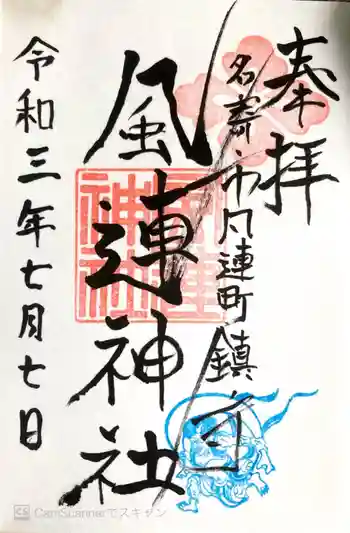 奉拝
名寄市風連町鎮守
風連神社
令和三年七月七日
風連神社
CS CamScannerでスキャン